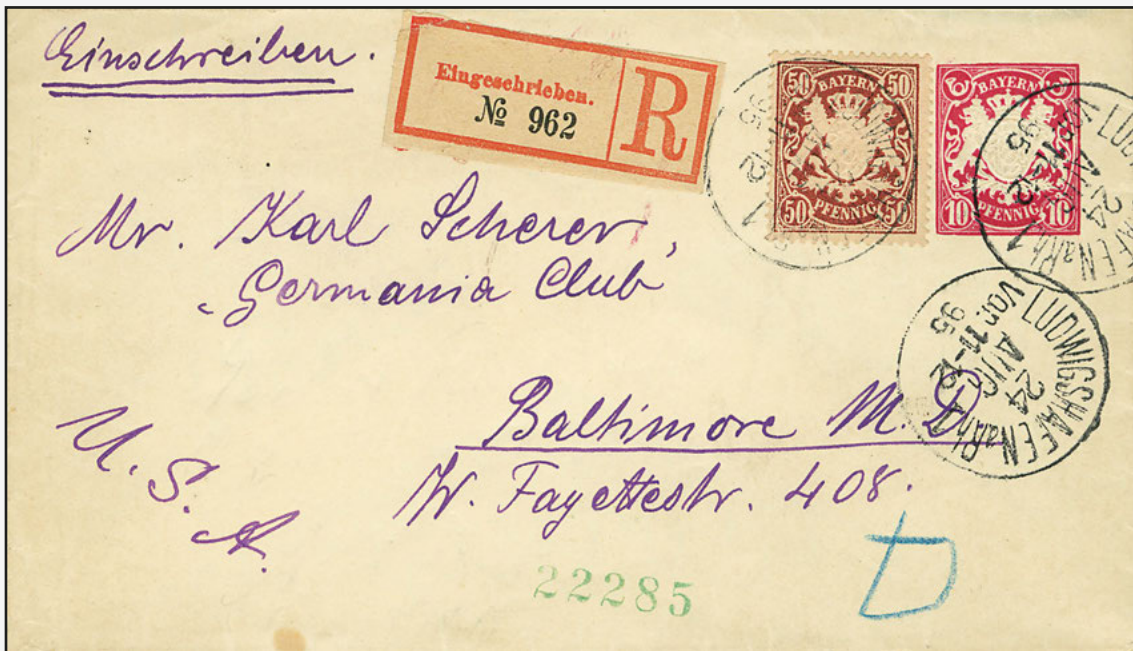 Einschreiben.
Eingeschrieben.
№ 962
R
50 BAYERN 50
50 PFENNIG 50
BAYERN
10 PFENNIG 10
LUDWIGSHAFEN a.Rh. 1
24
AUG
Vor. 11-12
95
Mr. Karl Scherer,
„Germania Club“
Baltimore M. D.
W. Fayettestr. 408.
U. S. A.
22285
D